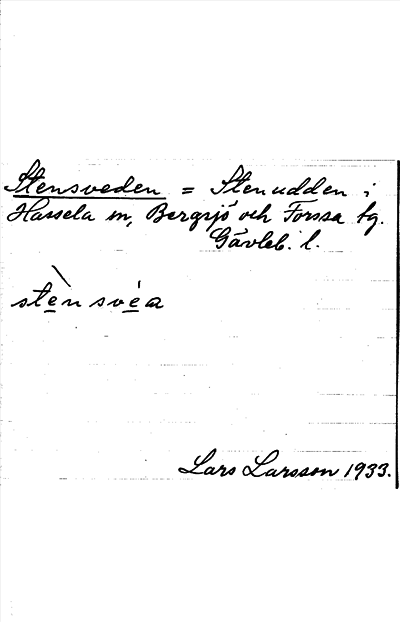 Stensveden = Stenudden i
Hassela sn, Bergsjö och Forssa tg.
Gävleb. l.
stènsvéa
Lars Larsson 1933.